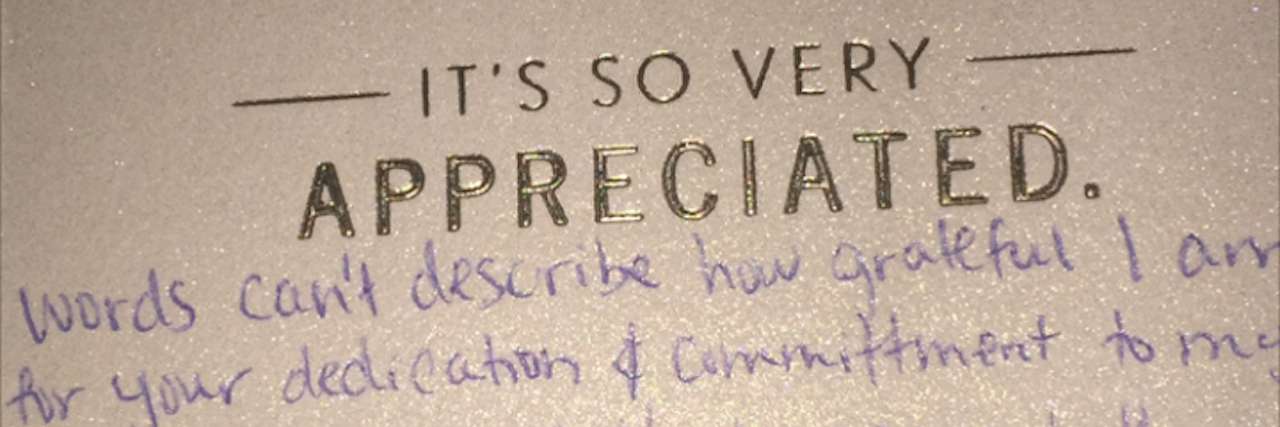 IT'S SO VERY
APPRECIATED.
Words can't describe how grateful I am
for your dedication & committment to my